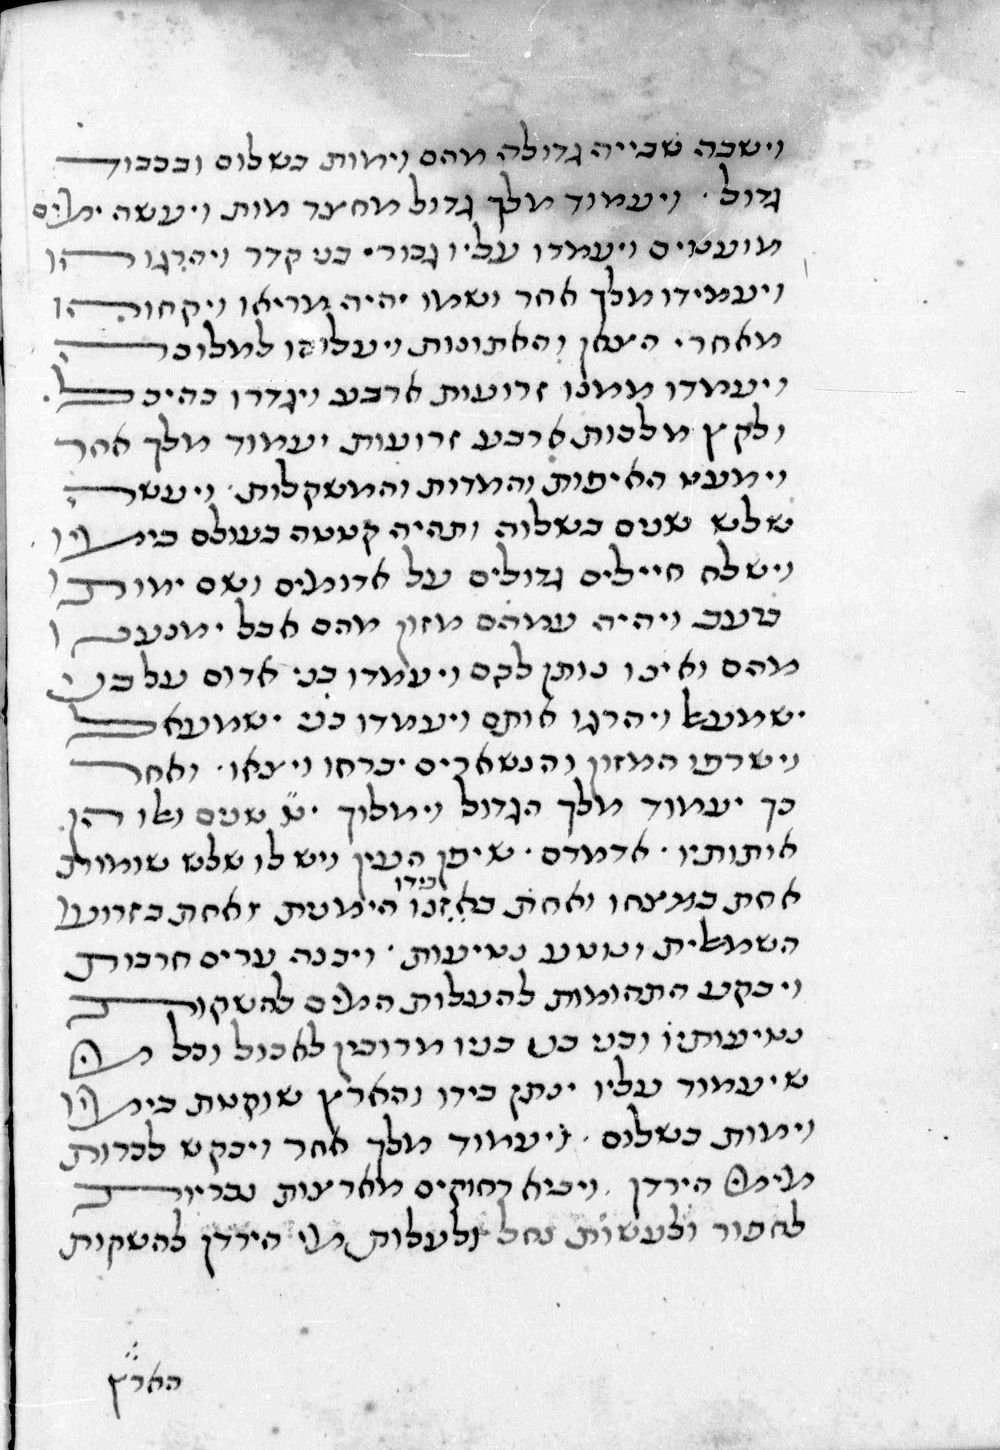 וישבה שבייה גדולה מהם וימות בשלום ובכבוד
גדול · ויעמוד מלך גדול מחצר מות ויעשה ימים
מועטים ויעמדו עליו גבורי בני קדר ויהרגוהו
ויעמידו מלך אחר ושמו יהיה מריאו ויקחוהו
מאחרי הצאן והאתונות ויעלוהו למלוכה
ויעמדו ממנו זרועות ארבע ויגדרו בהיכל ·
ולקץ מלכות ארבע זרועות יעמוד מלך אחר
וימעט האיפות והמדות והמשקלות · ויעשה
שלש שנים בשלוה ותהיה קטטה בעולם בימיו
וישלח חיילים גדולים על אדומים ושם ימות
ברעב ויהיה עמהם מזון מהם אכל ימנעו
מהם ואינו נותן להם ויעמדו בני אדום על בני
ישמעאל ויהרגו אותם ויעמדו בני ישמעאל
וישרפו המזון והנשארים יברחו ויצאו · ואחר
כך יעמוד מלך הגדול וימלוך י״ט שנים ואלו הן
אותותיו · אדמדם · שיפון העין ויש לו שלש שומות
אחת במצחו ואחת באזנו בידו הימנית ואחת בזרועו
השמאלית ונוטע נטיעות · ויבנה ערים חרבות
ויבקע התהומות להעלות המים להשקות
נטיעותיו ובני בני בניו מרובין לאכול וכל מי
שיעמוד עליו ינתן בידו והארץ שוקטת בימיו
וימות בשלום · ויעמוד מלך אחר ויבקש לכרות
מימי הירדן · ויביא רחוקים מארצות נכריות
לחפור ולעשות נחל ולעלות מי הירדן להשקות
הארץ